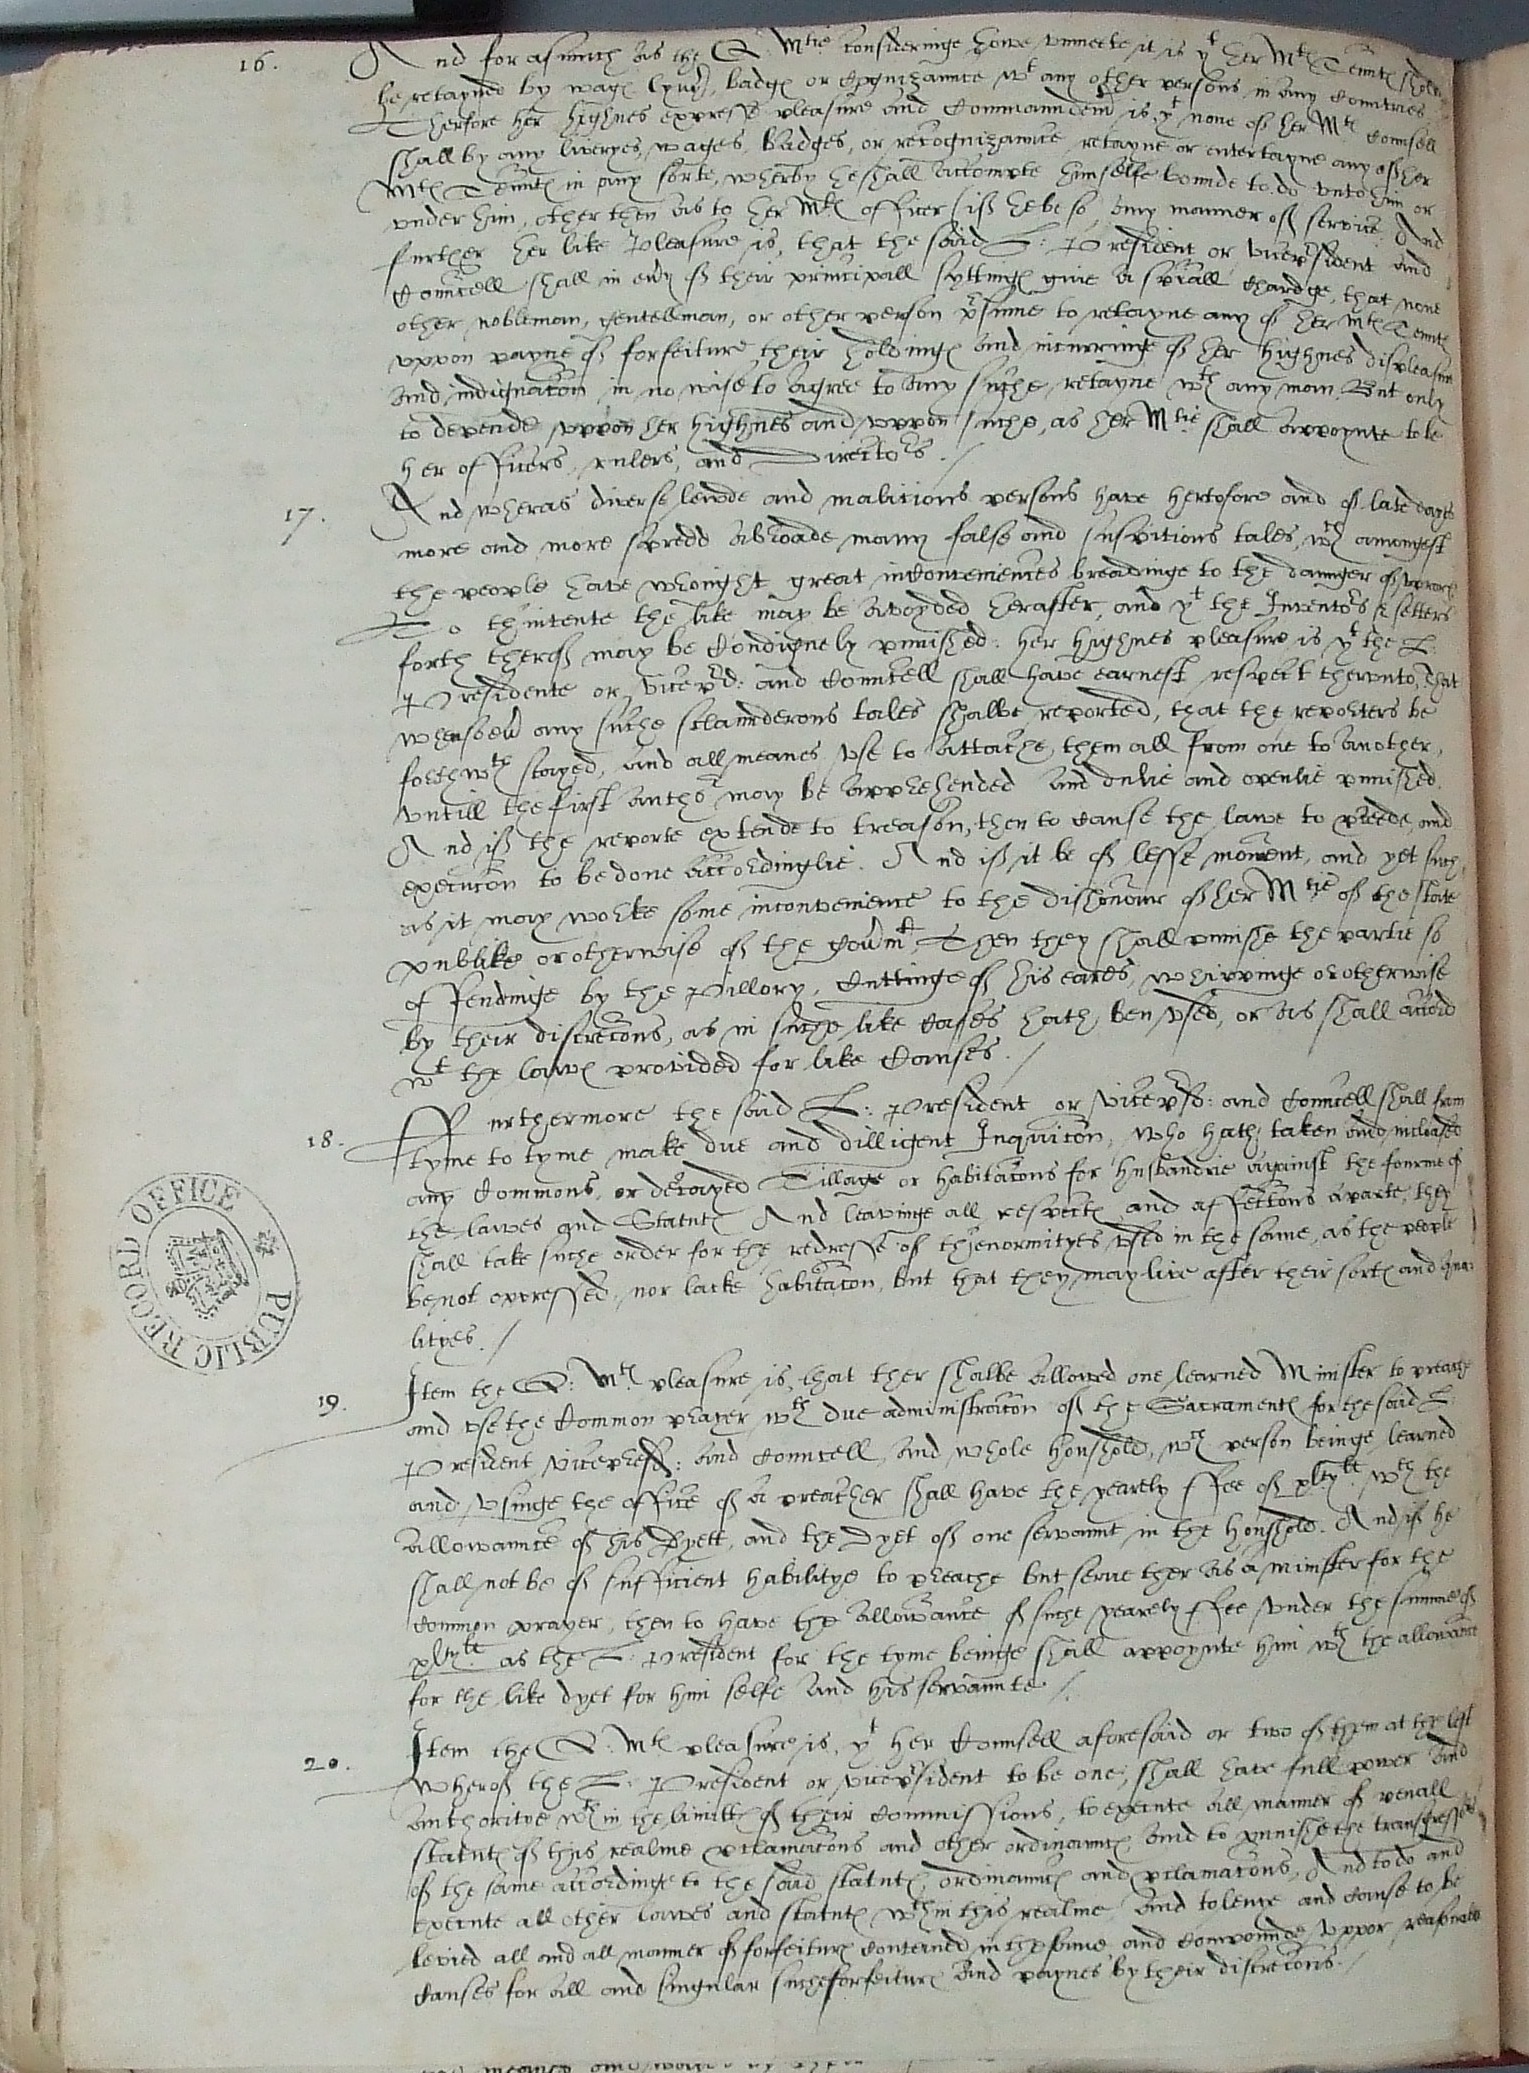 16. And for asmuch as the Q. Mtie consideringe howe unmeete it is yt her Mts Tennts shold
be retayned by wags lyvry, badgs or cognizaunce wt any other persons in any Countries
Therfore her highnes expresse pleasure and Commaundemt is yt none of her Mts Counsell
shall by any liveryes, wages, badges, or recognizaunce retayne or entertayne any of her
Mts Tennts in any sorte, wherby he shall accompte himselfe bounde to do unto him or
under him, other then as to her Mts officer if he be so, any manner of service. And
further her like pleasure is, that the said L: President or vicepresident and
Councell shall in evry of their principall syttings give a spiall chardge, that none
other nobleman, gentellman, or other person psume to retayne any of her Mts Tennts
uppon payne of forfeiture their holdings and incurringe of her highnes displeasure
and indignacon in no wise to agree to any suche retayne wth any man. But only
to depende uppon her highnes and uppon suche, as her Mtie shall appoynte to be
her officers, rulers, and Directors. /
17. And wheras diverse lewde and malitious persons have hertofore and of late dayes
more and more spredd abroade many false and suspitious tales, wch amongest
the people have wrought great inconveniences breadinge to the daunger of uprores
To thintente the like may be avoyded herafter, and yt the Inventors & setters
forth therof may be Condignely punished: her highnes pleasure is yt the L:
Presidente or vicepd: and Councell shall have earnest respect therunto, that
whensoevr any suche sclaunderous tales shalbe reported, that the reporters be
forthwth stayed, and all meanes use to attache them all from one to another,
untill the first author may be apprehended and dulie and openlie punished.
And if the reporte extende to treason, then to cause the lawe to pcede, and
execucon to be done accordinglie. And if it be of lesse moment, and yet such,
as it may worke some inconvenience to the dishonour of her Mtie of the state
publike or otherwise of the govrmt, Then they shall punishe the partie so
offendinge by the pillory, Cuttinge of his eares, whippinge or otherwise
by their discrecons, as in suche like cases hath ben used, or as shall accord
wt the laws provided for like Causes. /
18. Furthermore the said L: President or vicepsd: and Councell shall from
tyme to tyme make due and dilligent Inquicon, who hath taken and inclosed
any Commons, or decayed Tillage or habitacons for husbandrie against the fourme of
the lawes and Statuts And leavinge all respects and affeccons aparte, they
shall take suche order for the redresse of thenormityes used in the same, as the people
be not oppressed, nor lacke habitacon, but that they may live after their sorts and qua
lityes. /
19. Item the Q: Mts pleasure is, that ther shalbe allowed one learned Minister to preache
and use the Common prayer wth due administracon of the Sacraments for the said L:
President vicepresd: and Councell, and whole houshold, wch person beinge learned
and usinge the office of a preacher shall have the yearely ffee of wth the
allowaunce of his dyett, and the dyet of one servaunt in the houshold. And if he
shall not be of sufficient habilitye to preache but serve ther as a minister for the
Common prayer, then to have the allowance of suche yearely ffee under the summe of
as the L: President for the tyme beinge shall appoynte him wth the allowance
for the like dyet for him selfe and his servaunte /
20. Item the Q: Mts pleasure is, yt her Counsell aforesaid or two of them at the lest
wherof the L: President or vicepsident to be one, shall have full power and
authoritye wthin the limitts of their Commissions, to execute all manner of penall
statuts of this realme pclamacons and other ordinauncs, and to punishe the transgressors
of the same accordinge to the said statuts, ordinauncs and pclamacons, And to do and
execute all other lawes and statuts wthin this realme, and to levie and cause to be
levied all and all manner of forfeiturs conteined in the same and compounde uppon reasonable
causes for all and singular suche forfeiturs and paynes by their discrecons. /
PUBLIC RECORD OFFICE